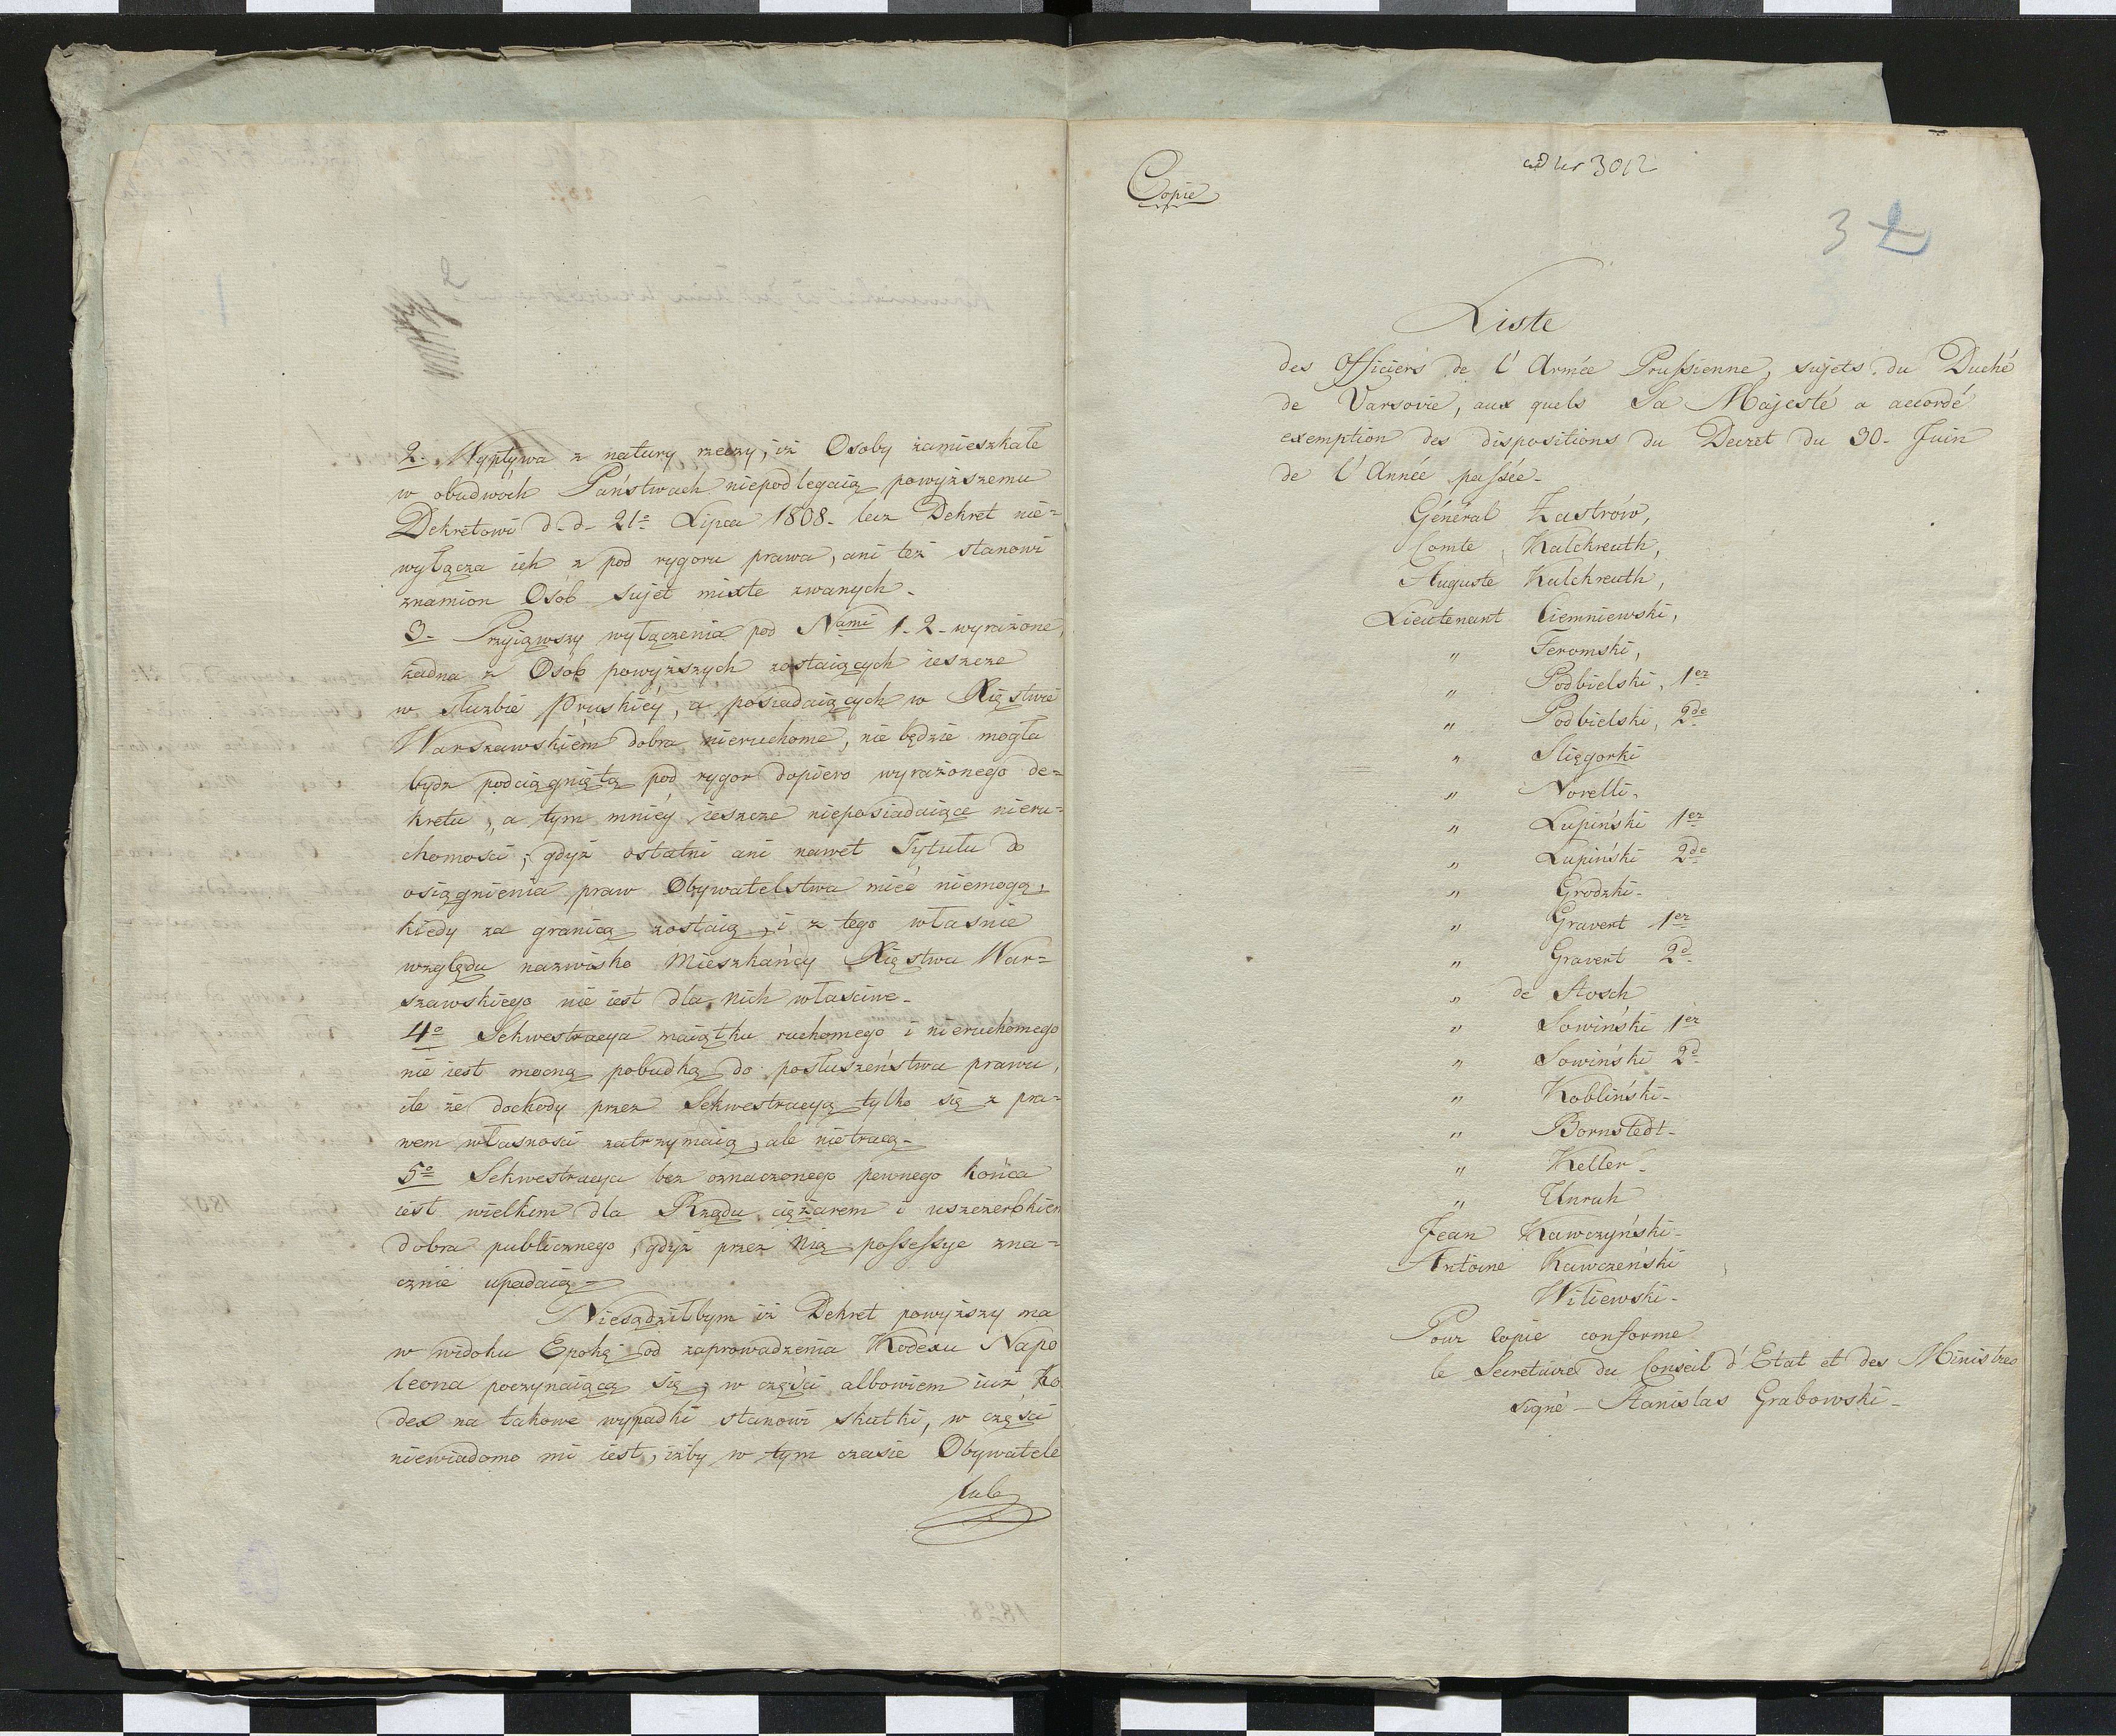 2. Wypływa z natury rzeczy, iż Osoby zamieszkałe
w obudwóch Państwach niepodlegaią powyższemu
Dekretowi d. d. 21º Lipca 1808. lecz Dekret nie=
wyłącza ich z pod rygoru prawa, ani też stanowi
znamion Osób sujet mixte zwanych.
3. Przyiąwszy wyłączenia pod Nami 1. 2. wyrażone,
żadna z Osób powyższych zostaiących ieszcze
w służbie Pruskiéy, a posiadaiących w Xięstwie
Warszawskiém dobra nieruchome, nie będzie mogła
bydź podciągniętą pod rygor dopiero wyrażonego de=
kretu, a tym mniéy ieszcze nieposiadaiące nieru=
chomości, gdyż ostatni ani nawet Tytułu do
osiągnienia praw Obywatelstwa mieć niemogą,
kiedy za granicą zostaią, i z tego własnie
względu nazwisko Mieszkańcy Xięstwa War=
szawskiego nie iest dla nich własciwe.
4º Sekwestracya maiątku ruchomego i nieruchomego
nie iest mocną pobudką do posłuszeństwa prawu,
ile że dochody przez Sekwestracyą tylko się z pra=
wem własnosci zatrzymaią, ale nietracą.
5º Sekwestracya bez oznaczonego pewnego końca
iest wielkim dla Rządu ciężarem i uszczerbkiem
dobra publicznego, gdyż przez nią possessye zna=
cznie upadaią.
Niesądziłbym iż Dekret powyższy ma
w widoku Epokę od zaprowadzenia Kodexu Napo
leona poczynaiącą się, w części albowiem iuż Ko
dex na takowe wypadki stanowi skutki, w części
niewiadomo mi iest, iżby w tym czasie Obywatele
Copie
ad Nr 3012
3 2
Liste
des Officiers de l'Armée Prussienne, sujets du Duché
de Varsovie, aux quels Sa Majesté a accordé
exemption des dispositions du Decret du 30. Juin
de l'Année passée.
Général Zastrów,
Comte Kalckreuth,
Auguste Kalckreuth,
Lieutenant Ciemniewski,
" Feromski,
" Podbielski, 1er
" Podbielski, 2de
" Slięgorki
" Norelli.
" Lupiński 1er
" Lupiński 2de
" Grodzki.
" Gravert 1er
" Gravert 2d
" de Stosch
" Sowiński 1er
" Sowiński 2d
" Kobliński.
" Bornstedt.
" Keller.
" Unruh
Jean Kawczyński.
Antoine Kawczeński
Witiewski.
Pour copie conforme
le Secretaire du Conseil d'Etat et des Ministres
signé - Stanislas Grabowski.